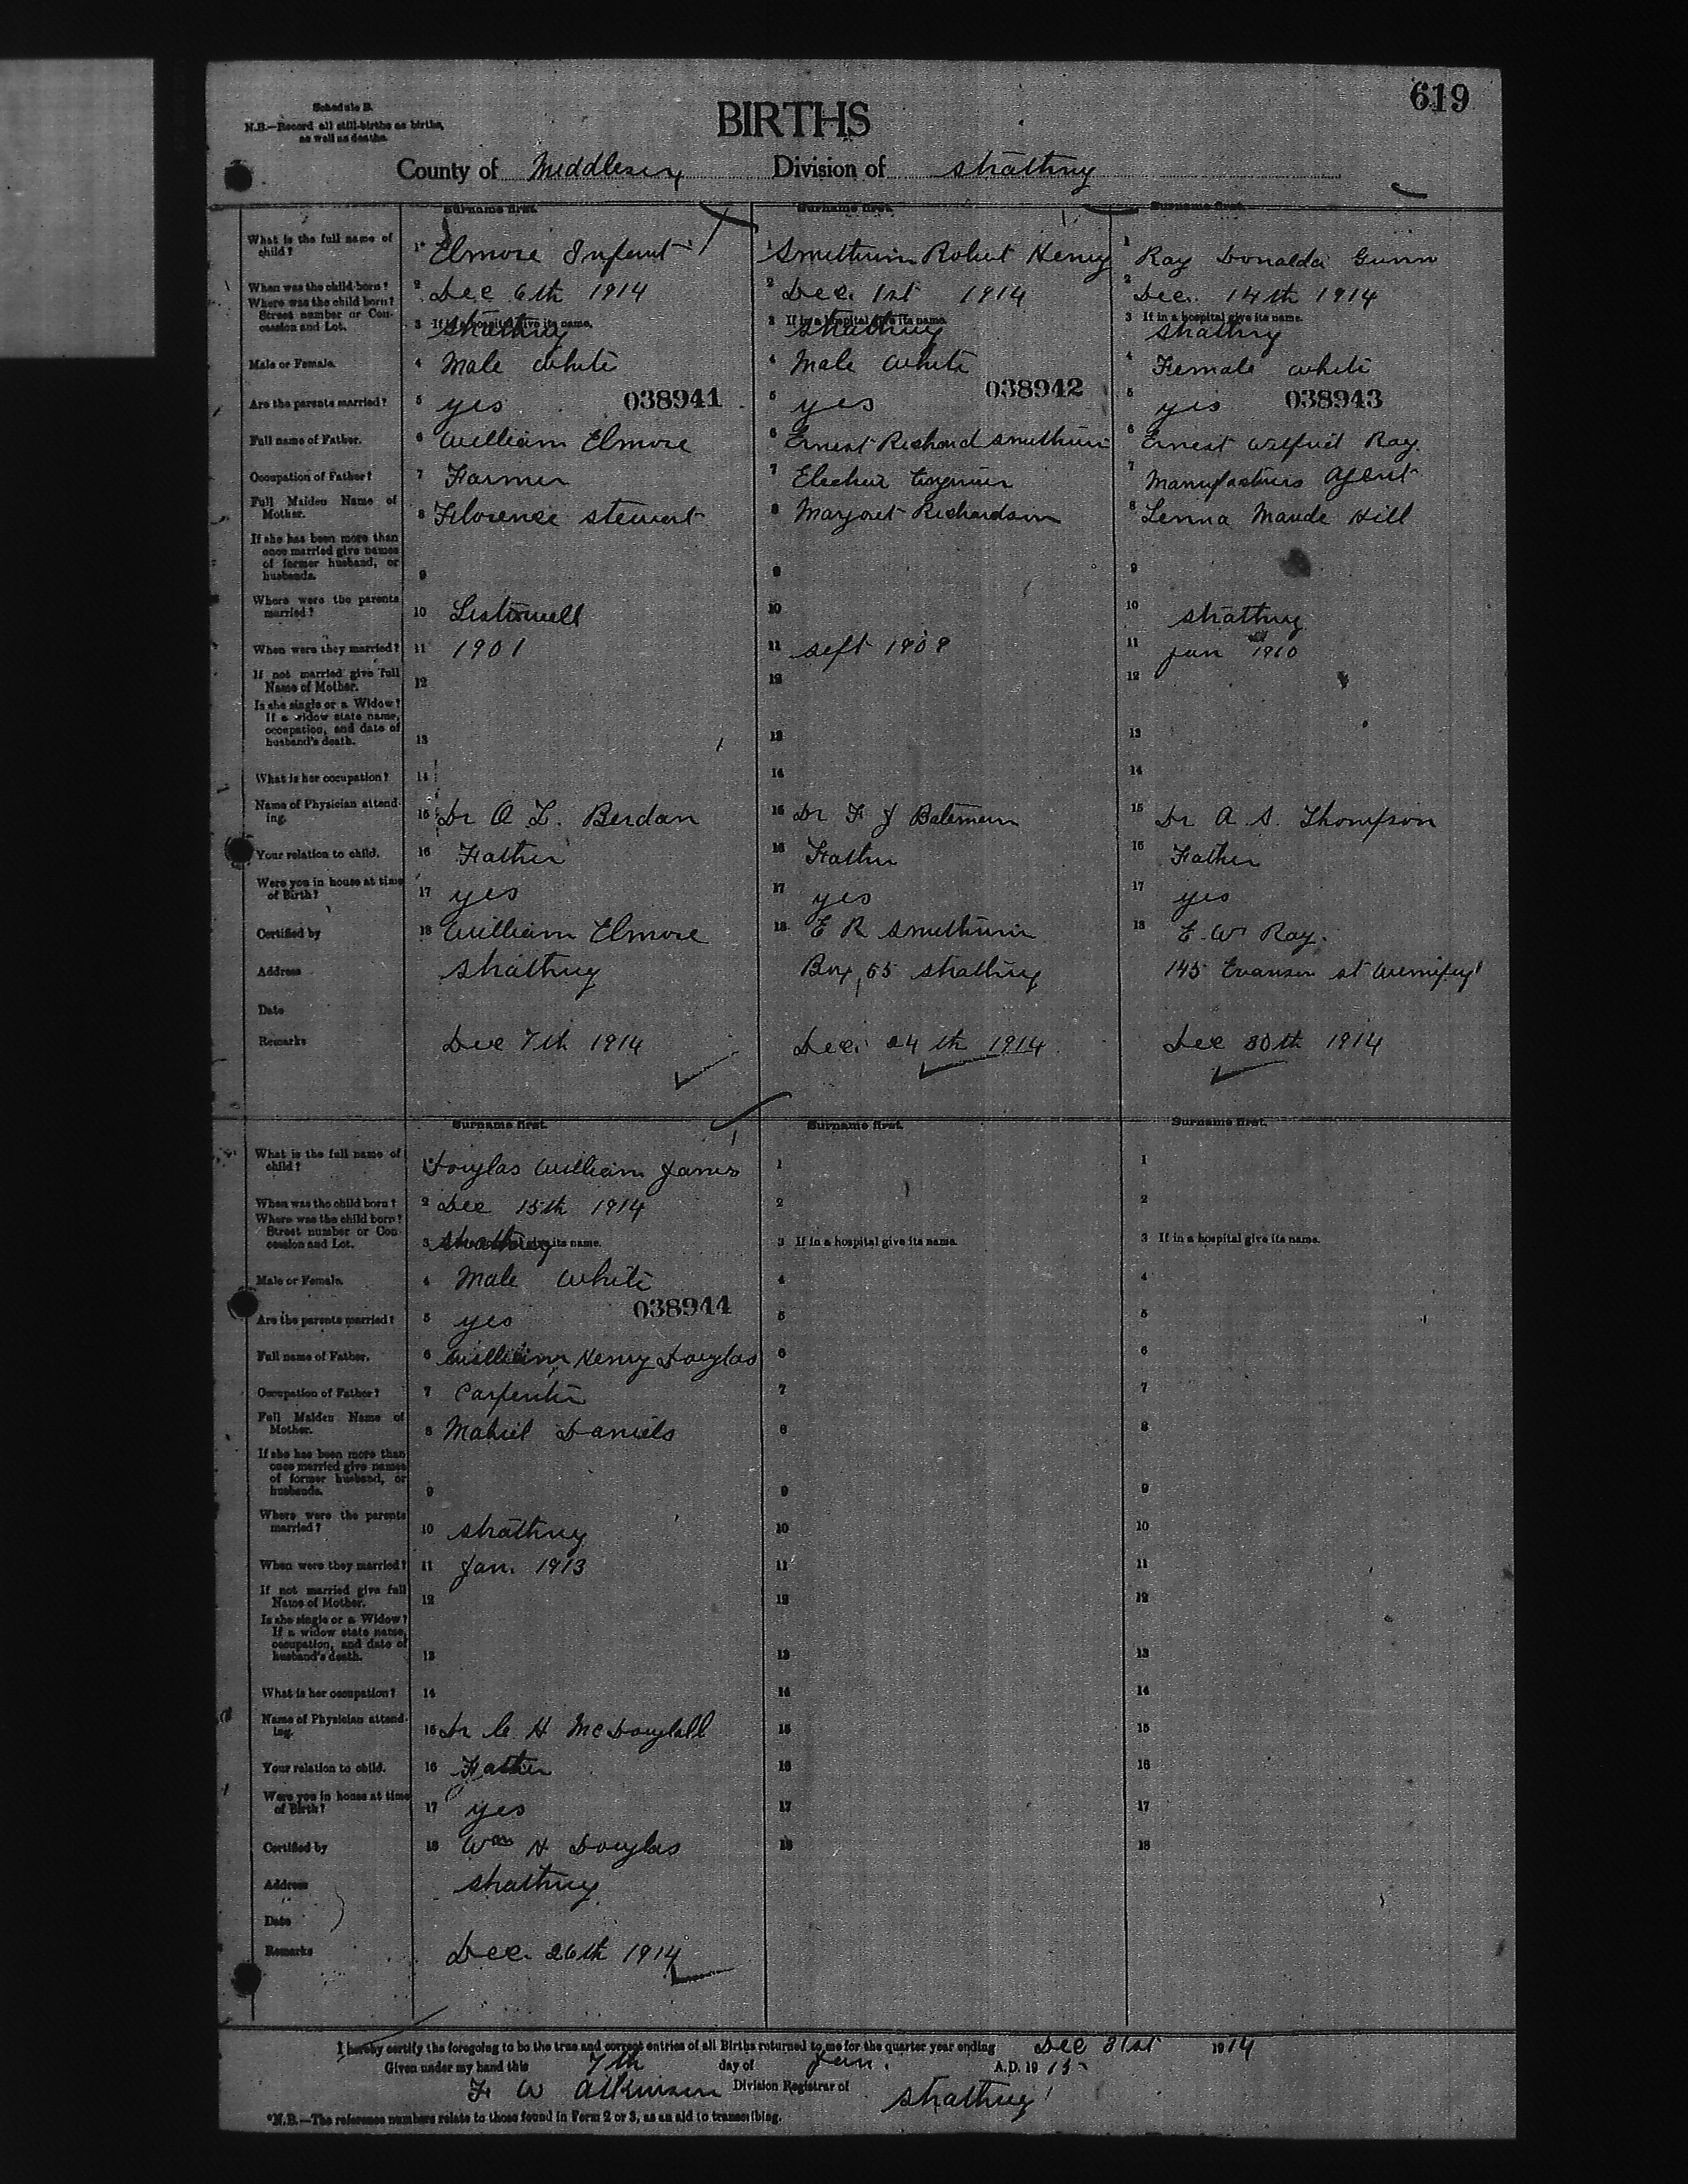 619
Schedule B.
N.B.—Record all still-births as births,
as well as deaths.
BIRTHS
County of Middlesex Division of Strathroy
Surname first. Surname first. Surname first.
What is the full name of child? 1* Elmore Infant 1 Robert Henry 1 Ray Donalda Gunn
When was the child born? 2 Dec 6th 1914 2 Dec. 1st 1914 2 Dec. 14th 1914
Where was the child born? Street number or Concession and Lot. 3 If in a hospital give its name. Strathroy 3 If in a hospital give its name. Strathroy 3 If in a hospital give its name. Strathroy
Male or Female. 4 Male White 4 Male White 4 Female White
Are the parents married? 5 yes 038941 5 yes 038942 5 yes 038943
Full name of Father. 6 William Elmore 6 Ernest Richard 6 Ernest Wilfrid Ray.
Occupation of Father? 7 Farmer 7 Engineer 7 Manufacturers Agent
Full Maiden Name of Mother. 8 Florence Stewart 8 Margaret Richardson 8 Lenna Maude Hill
If she has been more than once married give names of former husband, or husbands. 9 9 9
Where were the parents married? 10 Listowell 10 10 Strathroy
When were they married? 11 1901 11 Sept 11 Jan 1910
If not married give full Name of Mother. 12 12 12
Is she single or a Widow? If a widow state name, occupation, and date of husband's death. 13 13 13
What is her occupation? 14 14 14
Name of Physician attending. 15 Dr O L. Berdan 15 Dr F J Bateman 15 Dr A. S. Thompson
Your relation to child. 16 Father 16 Father 16 Father
Were you in house at time of Birth? 17 yes 17 yes 17 yes
Certified by 18 William Elmore 18 E R 18 E. W. Ray.
Address Strathroy Box 65 Strathroy 145 Evanson St Winnipeg
Date
Remarks Dec 7th 1914 Dec. 24th 1914 Dec 30th 1914
Surname first. Surname first. Surname first.
What is the full name of child? 1* Douglas William James 1 1
When was the child born? 2 Dec 15th 1914 2 2
Where was the child born? Street number or Concession and Lot. 3 Strathroy its name. 3 If in a hospital give its name. 3 If in a hospital give its name.
Male or Female. 4 Male White 4 4
Are the parents married? 5 yes 038944 5 5
Full name of Father. 6 William Henry Douglas 6 6
Occupation of Father? 7 Carpenter 7 7
Full Maiden Name of Mother. 8 Daniels 8 8
If she has been more than once married give names of former husband, or husbands. 9 9 9
Where were the parents married? 10 Strathroy 10 10
When were they married? 11 Jan. 1913 11 11
If not married give full Name of Mother. 12 12 12
Is she single or a Widow? If a widow state name, occupation, and date of husband's death. 13 13 13
What is her occupation? 14 14 14
Name of Physician attending. 15 Dr C H 15 15
Your relation to child. 16 Father 16 16
Were you in house at time of Birth? 17 yes 17 17
Certified by 18 Wm H Douglas 18 18
Address Strathroy
Date
Remarks Dec. 26th 1914
I hereby certify the foregoing to be the true and correct entries of all Births returned to me for the quarter year ending Dec 31st 1914
Given under my hand this 7th day of Jan. A.D. 1915
F W Atkinson Division Registrar of Strathroy
*N.B.—The reference numbers relate to those found in Form 2 or 3, as an aid to transcribing.